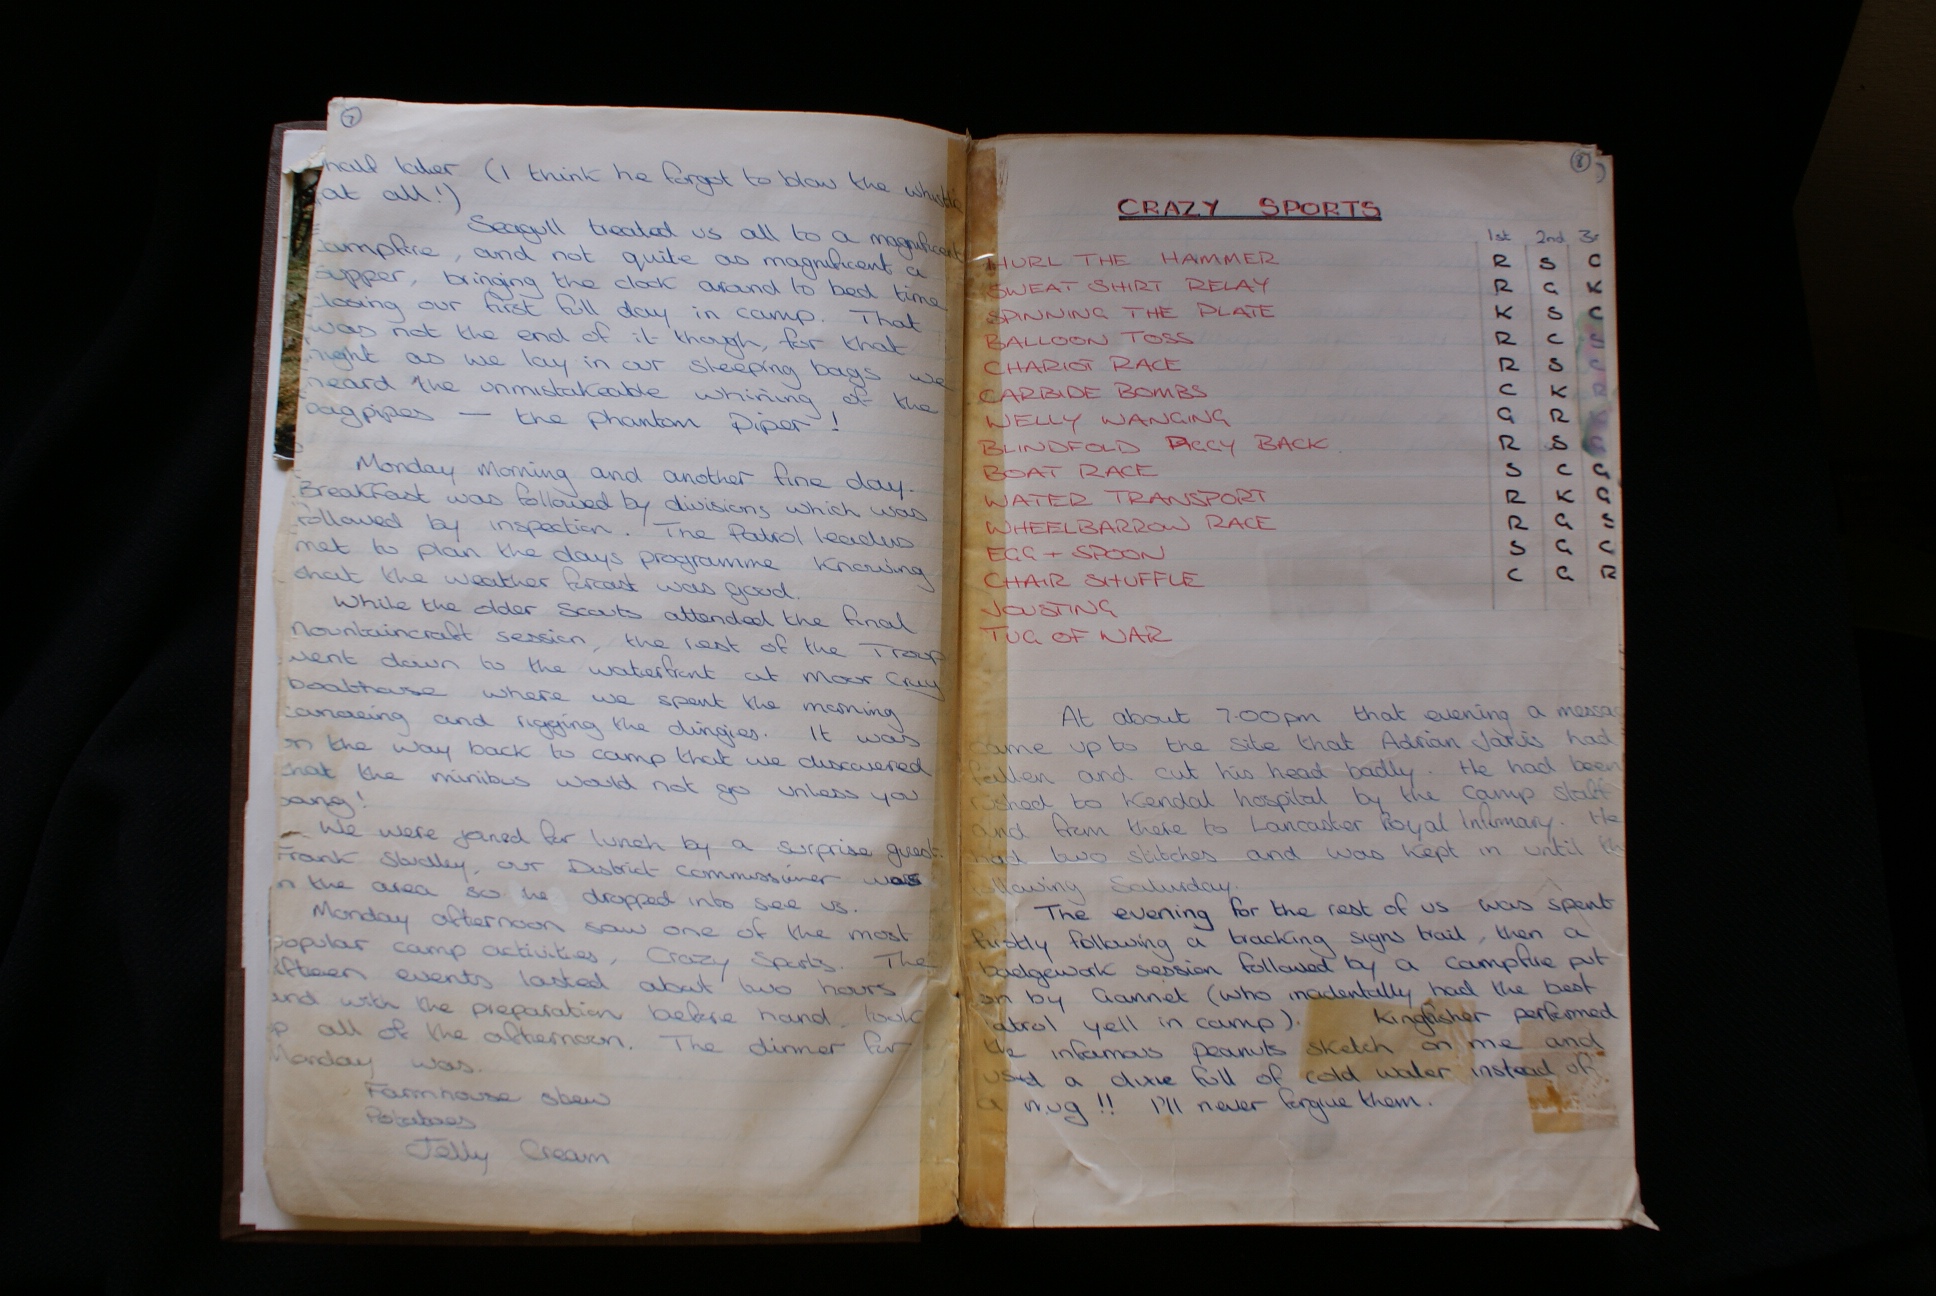 7
half later (I think he forgot to blow the whistle
at all!)
Seagull treated us all to a magnificent
campfire, and not quite as magnificent a
supper, bringing the clock around to bed time
closing our first full day in camp. That
was not the end of it though, for that
night as we lay in our sleeping bags we
heard the unmistakeable whining of the
bagpipes — the phantom Piper!
Monday morning and another fine day.
Breakfast was followed by divisions which was
followed by inspection. The Patrol leaders
met to plan the days programme knowing
that the weather forcast was good.
While the older Scouts attended the final
Mountaincraft session, the rest of the Troop
went down to the waterfront at Moor Crag
boathouse where we spent the morning
canoeing and rigging the dingies. It was
on the way back to camp that we discovered
that the minibus would not go unless you
bang!
We were joined for lunch by a surprise guest.
Frank Studley, our District commissioner was
in the area so he dropped into see us.
Monday afternoon saw one of the most
popular camp activities, Crazy Sports. The
fifteen events lasted about two hours
and with the preparation before hand, took
up all of the afternoon. The dinner for
Monday was.
Farmhouse stew
Potatoes
Jelly Cream
8
CRAZY SPORTS
1st 2nd 3r
HURL THE HAMMER R S C
SWEAT SHIRT RELAY R G K
SPINNING THE PLATE K S C
BALLOON TOSS R C
CHARIOT RACE R S
CARBIDE BOMBS C K R
WELLY WANGING G R K
BLINDFOLD PIGGY BACK R S
BOAT RACE S C G
WATER TRANSPORT R K G
WHEELBARROW RACE R G S
EGG + SPOON S G C
CHAIR SHUFFLE C G R
JOUSTING
TUG OF WAR
At about 7.00pm that evening a messag
came up to the site that Adrian Jarvis had
fallen and cut his head badly. He had been
rushed to Kendal hospital by the camp staff
and from there to Lancaster Royal Infirmary. He
had two stitches and was kept in until th
following Saturday.
The evening for the rest of us was spent
firstly following a tracking signs trail, then a
badgework session followed by a campfire put
on by Gannet (who inadentally had the best
patrol yell in camp). Kingfisher performed
the infamous peanuts sketch on me and
used a dixie full of cold water instead of
a mug!! I'll never forgive them.